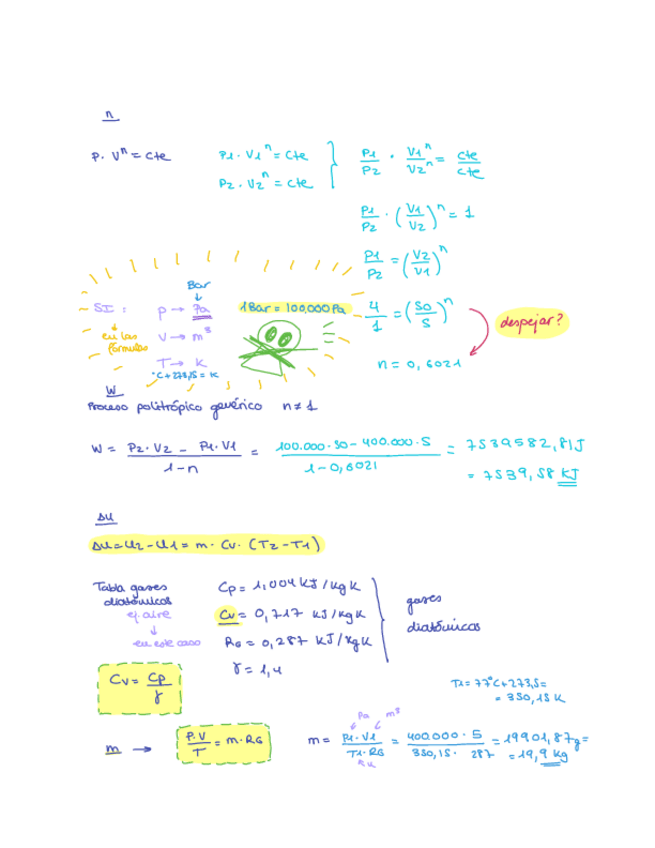 n
P · Vⁿ = cte
P1 · V1ⁿ = cte
P2 · V2ⁿ = cte
P1/P2 · V1ⁿ/V2ⁿ = cte/cte
P1/P2 · (V1/V2)ⁿ = 1
P1/P2 = (V2/V1)ⁿ
4/1 = (50/5)ⁿ
despejar?
n = 0,6021
Bar
↓
SI: p → Pa
1 Bar = 100,000 Pa
en las fórmulas
V → m³
T → K
°C + 273,15 = K
W
Proceso politrópico genérico n ≠ 1
W = (P2 · V2 - P1 · V1)/(1-n) = (100.000 · 50 - 400.000 · 5)/(1-0,6021) = 7539582,81 J
= 7539,58 KJ
ΔU
ΔU = U2 - U1 = m · Cv · (T2 - T1)
Tabla gases diatómicos
ej. aire
↓
en este caso
Cp = 1,004 KJ/kg K
Cv = 0,717 KJ/kg K
RG = 0,287 KJ/kg K
γ = 1,4
gases
diatómicos
Cv = Cp/γ
T1 = 77°C + 273,15 =
= 350,15 K
m → P.V/T = m · RG
Pa m³
m = P1 · V1/T1 · RG = 400.000 · 5/350,15 · 287 = 19901,87g =
= 19,9 kg